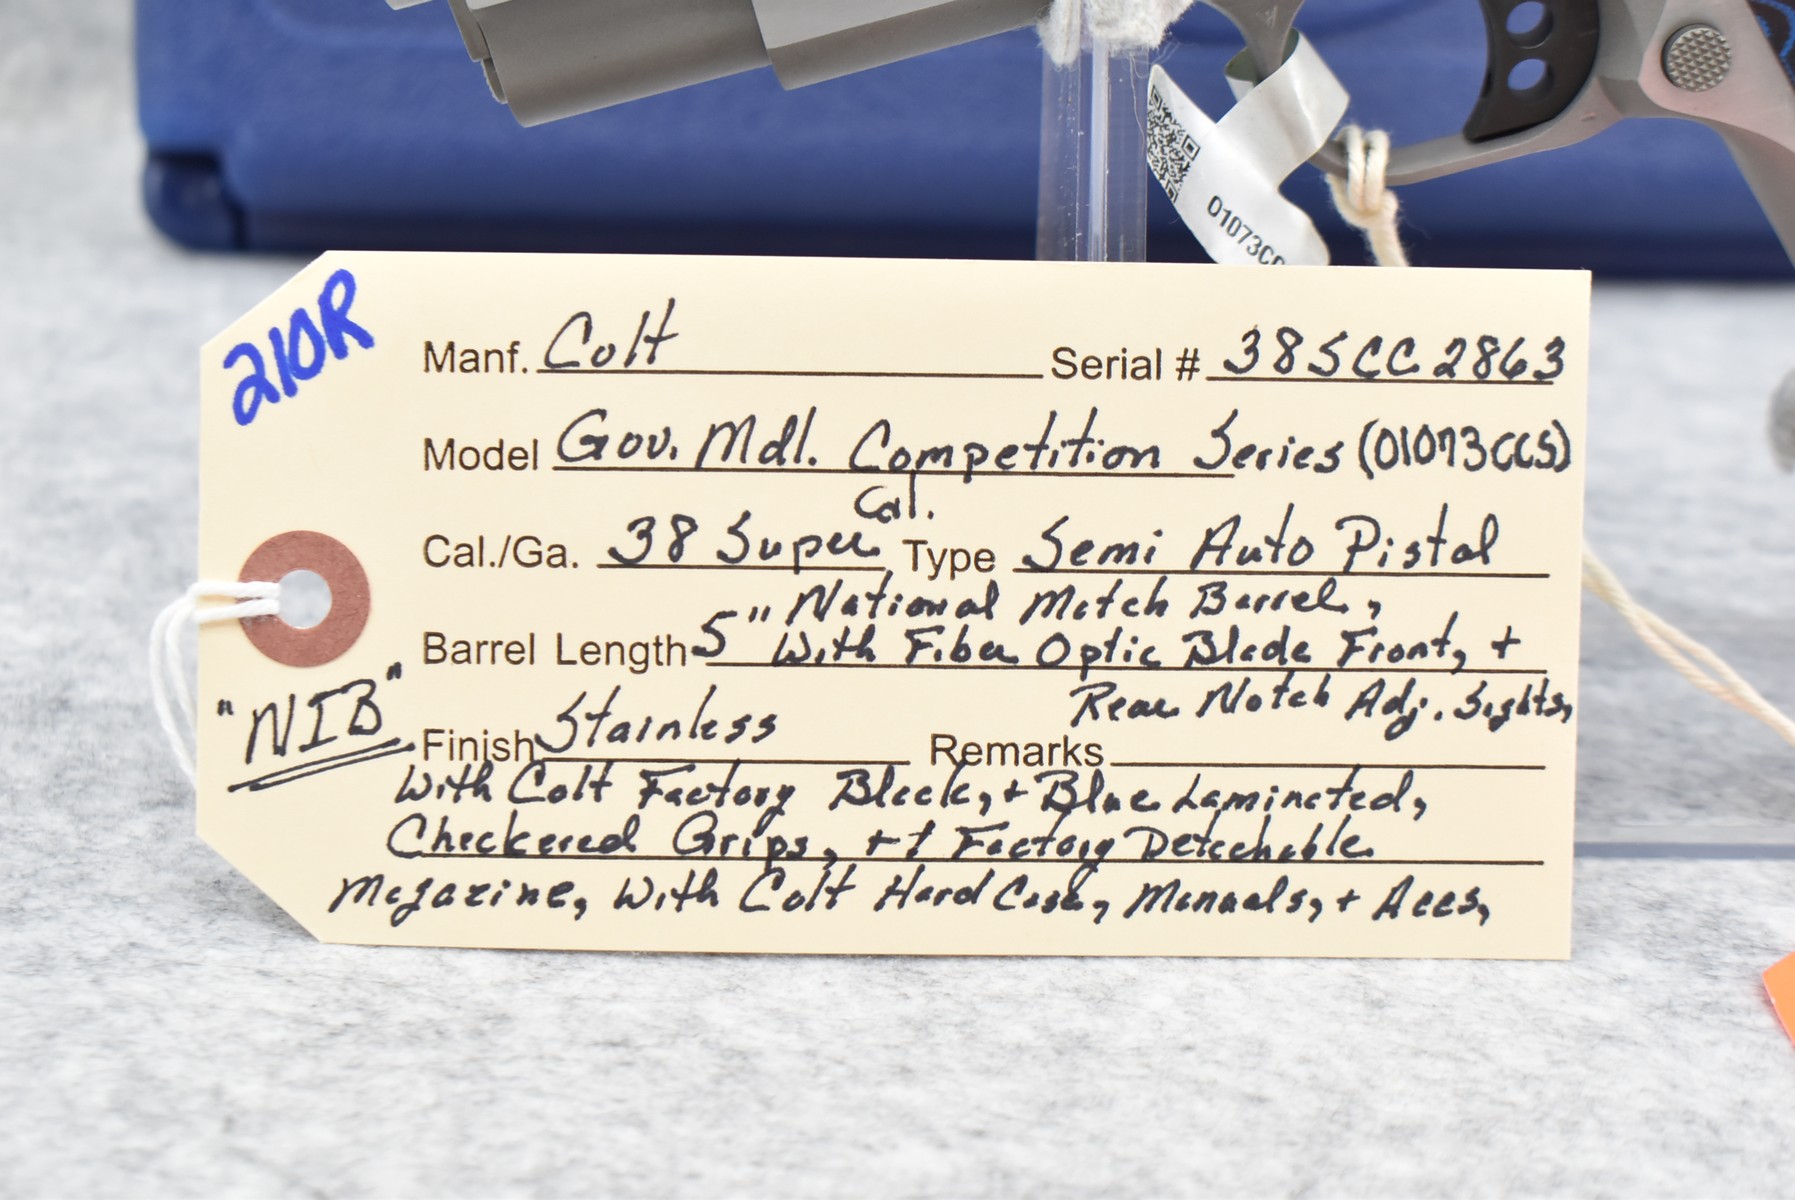 01073CC
210R
Manf. Colt Serial # 38SCC2863
Model Gov. Mdl. Competition Series (01073CCS)
Cal./Ga. 38 Super Cal. Type Semi Auto Pistol
National Match Barrel,
Barrel Length 5" With Fiber Optic Blade Front, +
Rear Notch Adj. Sights,
"NIB"
Finish Stainless Remarks
With Colt Factory Black, + Blue Laminated,
Checkered Grips, + 1 Factory Detachable
Magazine, With Colt Hard Case, Manuals, + Aces,